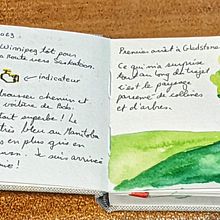 2023.
Winnipeg tôt pour
la route vers Saskatoon.
indicateur
rebrousser chemin et
voilure de Bob.
tout superbe ! Le
très bleu au Manitoba
en plus qu'en
Je suis arrivée
!
Premier arrêt à Gladstone
Ce qui m'a surprise
tout au long du trajet
c'est le paysage
parsemé de collines
et d'arbres.